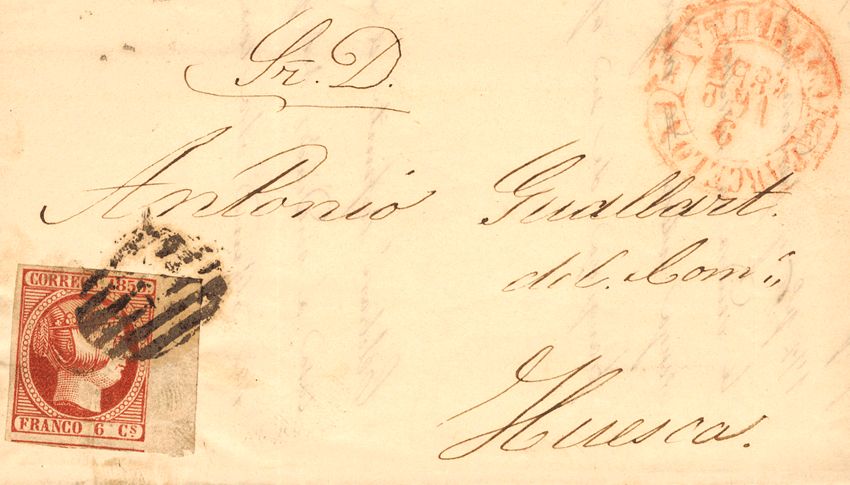 Sr. D.
Antonio Guallart.
del Com.
Huesca.
CORREOS 1852.
FRANCO 6 Cs